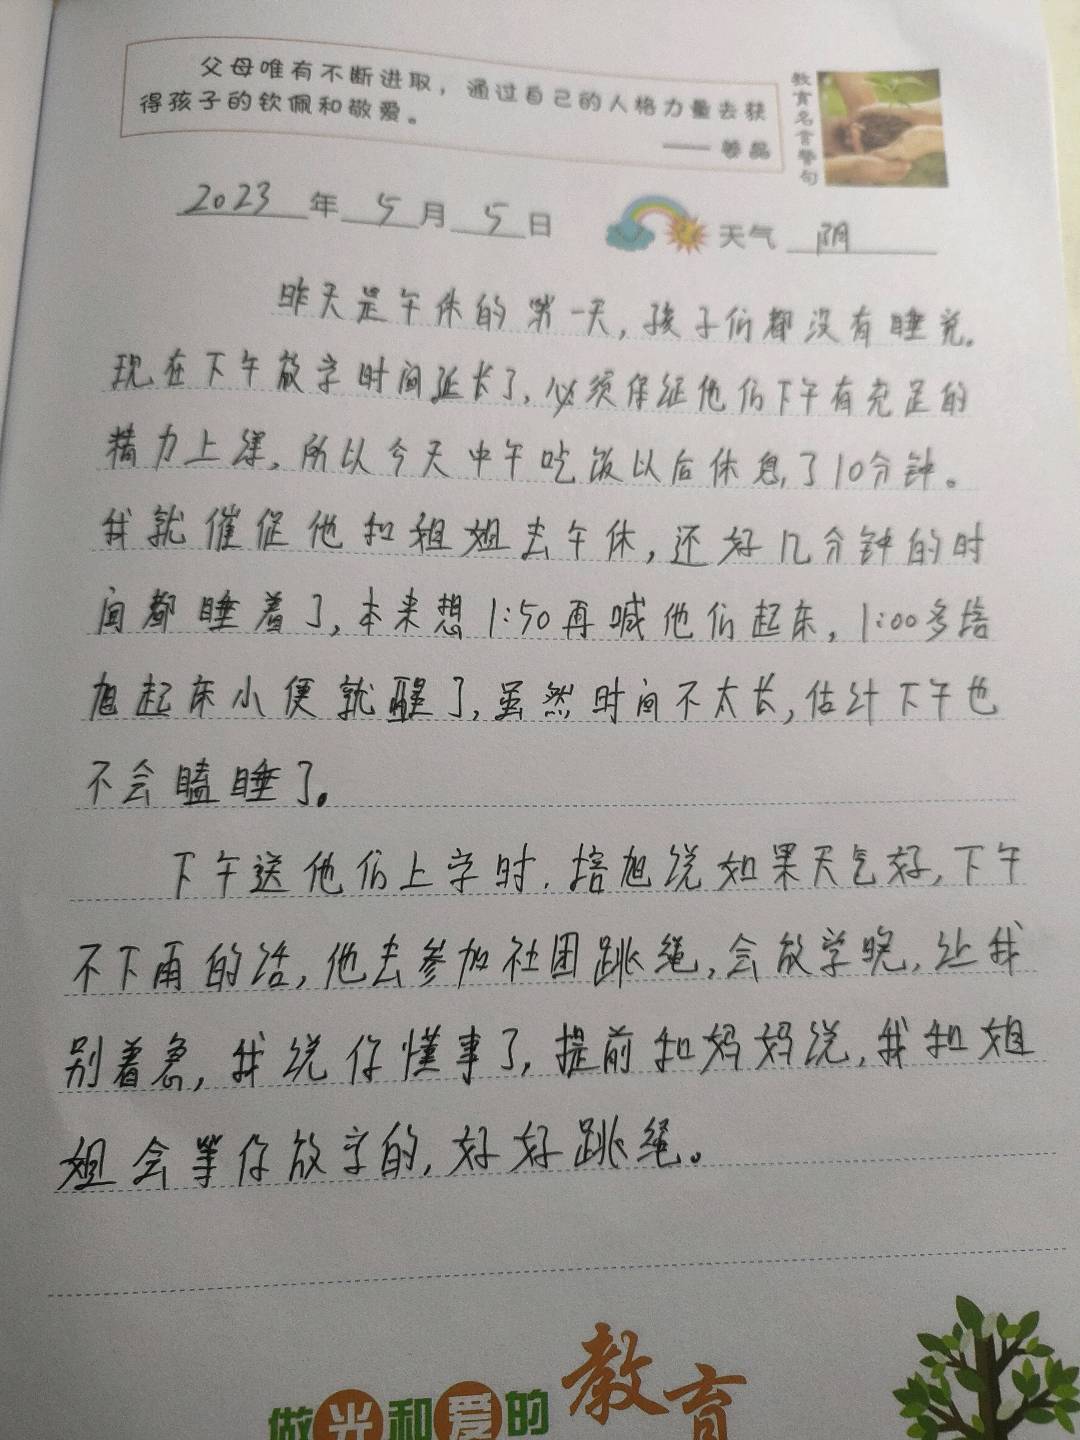 父母唯有不断进取，通过自己的人格力量去获
得孩子的钦佩和敬爱。
教育名言警句
2023年5月5日 天气 阴
昨天是午休的第一天，孩子们都没有睡觉。
现在下午放学时间延长了，必须保证他们下午有充足的
精力上课。所以今天中午吃饭以后休息了10分钟。
我就催促他和姐姐去午休，还好几分钟的时
间都睡着了，本来想1:50再喊他们起床，1:00多培
旭起床小便就醒了，虽然时间不太长，估计下午也
不会瞌睡了。
下午送他们上学时，培旭说如果天气好，下午
不下雨的话，他去参加社团跳绳，会放学晚，让我
别着急，我说你懂事了，提前和妈妈说，我和姐
姐会等你放学的，好好跳绳。
做光和爱的教育